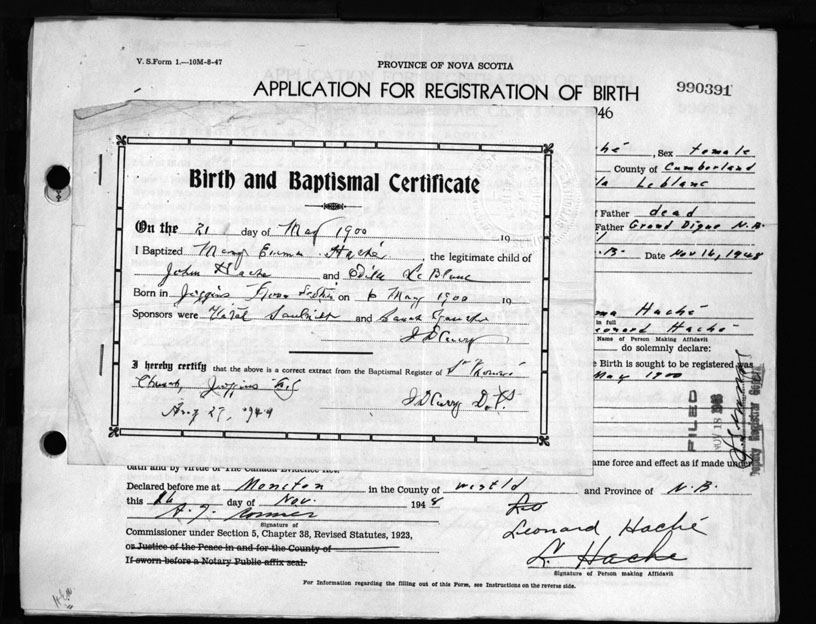 V. S. Form 1.—10M-8-47
PROVINCE OF NOVA SCOTIA
APPLICATION FOR REGISTRATION OF BIRTH
990391
46
ché, Sex Female
County of Cumberland
la Leblanc
Father dead
Father Grand Digue N.B.
.B. Date Nov 16, 1948
Birth and Baptismal Certificate
On the 21 day of May 1900 19
I Baptized Mary Emma Haché, the legitimate child of
John Hache and Odille Le Blanc
Born in Joggins Nova Scotia on 6 May 1900 19
Sponsors were and
J D Curry
I hereby certify that the above is a correct extract from the Baptismal Register of St Thomas
Church, Joggins
Aug 27, 1944 J D Curry
ma Haché
in full
eonard Haché
Name of Person Making Affidavit
do solemnly declare:
Birth is sought to be registered was
May 1900
FILED
NOV 18 1948
Deputy Registrar General
ame force and effect as if made under
oath and by virtue of The Canada Evidence Act.
Declared before me at Moncton in the County of Westld and Province of N.B.
this 16 day of Nov. 1948
A. J. Cormier
Signature of
Commissioner under Section 5, Chapter 38, Revised Statutes, 1923,
or Justice of the Peace in and for the County of
If sworn before a Notary Public affix seal.
Leonard Haché
L. Hache
Signature of Person making Affidavit
For Information regarding the filling out of this Form, see Instructions on the reverse side.